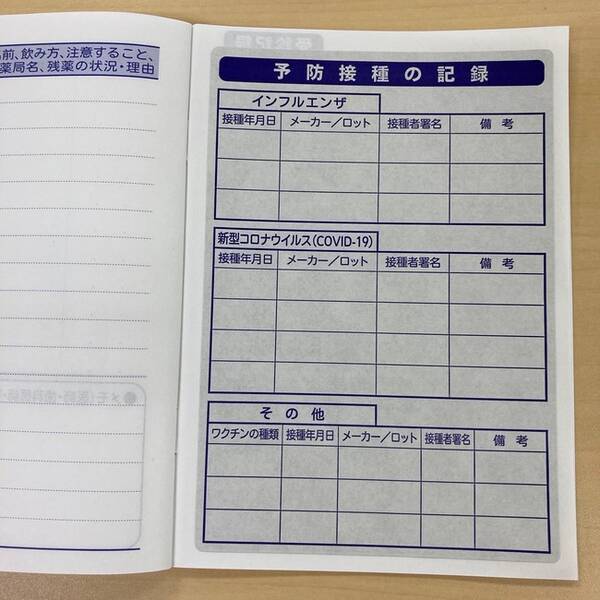 前、飲み方、注意すること、
薬局名、残薬の状況・理由
予防接種の記録
インフルエンザ
接種年月日 メーカー／ロット 接種者署名 備考
新型コロナウイルス(COVID-19)
接種年月日 メーカー／ロット 接種者署名 備考
その他
ワクチンの種類 接種年月日 メーカー／ロット 接種者署名 備考